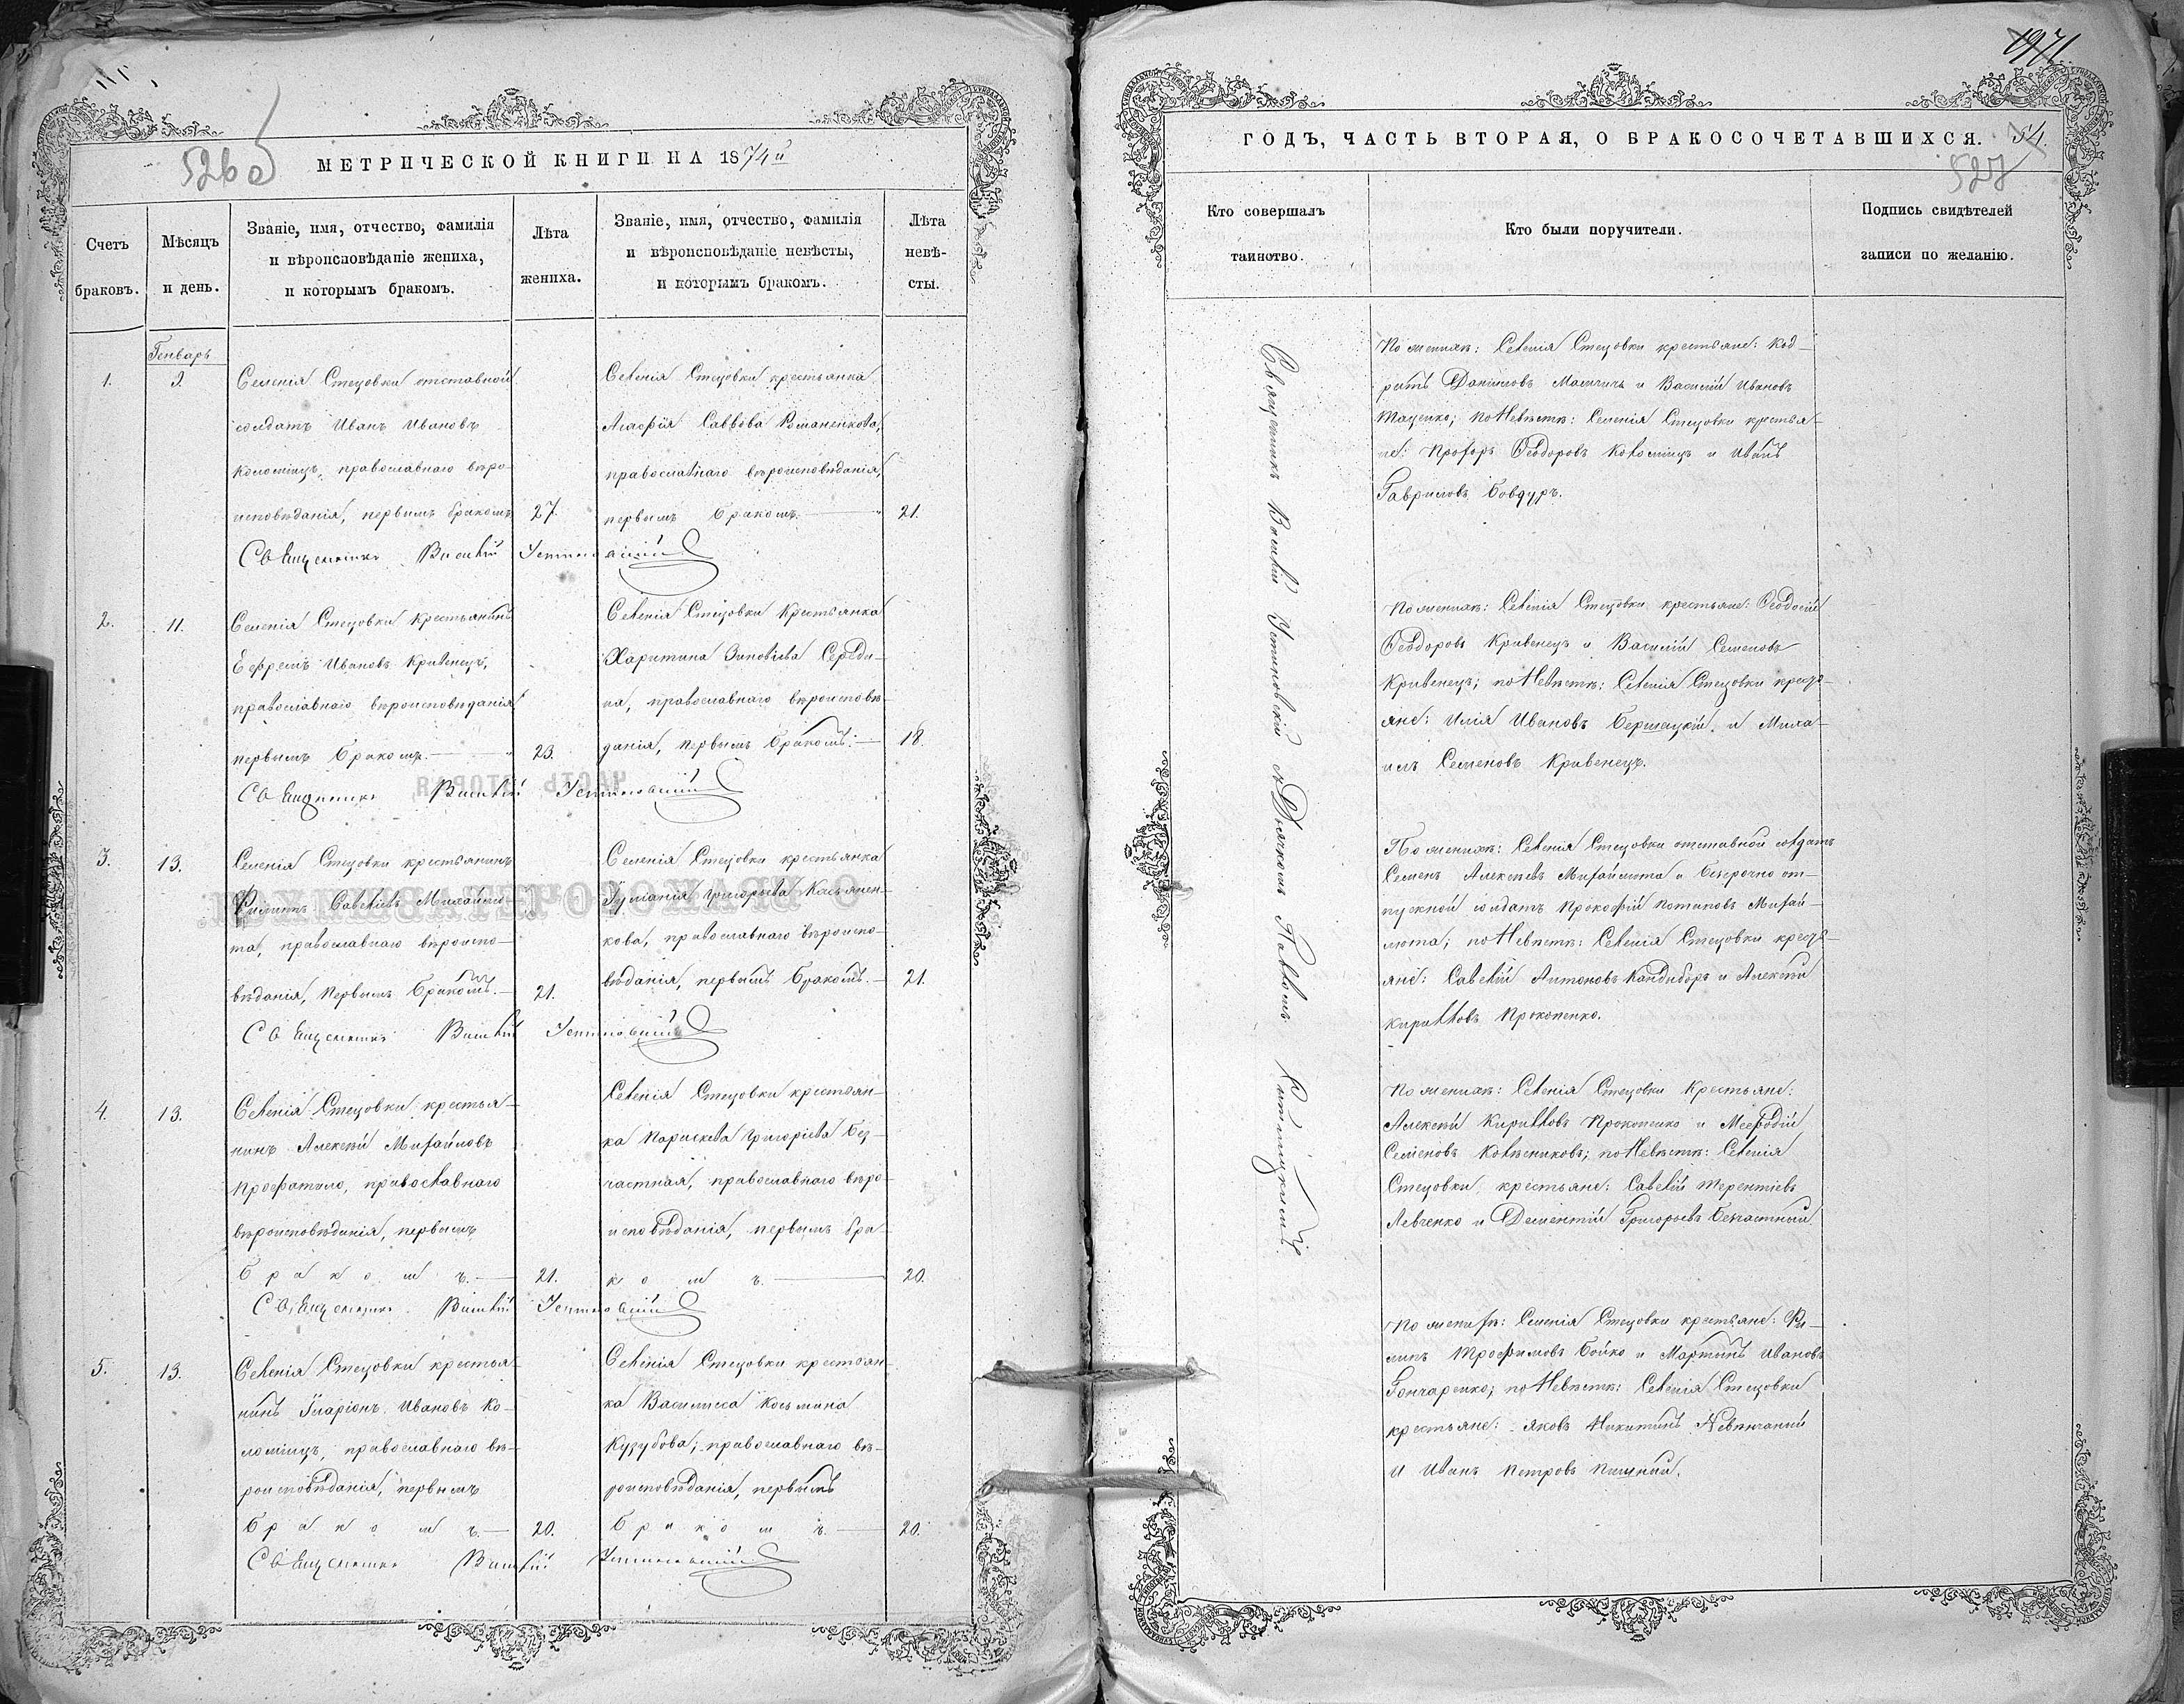 526 об
МЕТРИЧЕСКОЙ КНИГИ НА 1874й
Счетъ браковъ.
Мѣсяцъ и день.
Званіе, имя, отчество, фамилія
и вѣроисповѣданіе жениха,
и которымъ бракомъ.
Лѣта жениха.
Званіе, имя, отчество, фамилія
и вѣроисповѣданіе невѣсты,
и которымъ бракомъ.
Лѣта невѣ-
сты.
Генварь
1.
Селенія Стецовки отставной
солдатъ Иванъ Ивановъ
Коломіецъ, православнаго вѣро-
исповѣданія, первымъ бракомъ
27.
Селенія Стецовки крестьянка
Агафія Саввова Романенкова,
православнаго вѣроисповѣданія,
первымъ бракомъ.
21.
Священникъ Василій Устиновскій
2.
11.
Селенія Стецовки крестьянинъ
Ефремъ Ивановъ Кривенецъ,
православнаго вѣроисповѣданія
первымъ бракомъ.
23.
Селенія Стецовки крестьянка
Харитина Зиновіева Середи-
на, православнаго вѣроисповѣ-
данія, первымъ бракомъ.
18.
Священникъ Василій Устиновскій
3.
13.
Селенія Стецовки крестьянинъ
Филипъ Савеліевъ Михайлю-
та, православнаго вѣроиспо-
вѣданія, первымъ бракомъ.
21.
Селенія Стецовки крестьянка
Іуліанія Григорьева Касьянен-
кова, православнаго вѣроиспо-
вѣданія, первымъ бракомъ.
21.
Священникъ Василій Устиновскій
4.
13.
Селенія Стецовки крестья-
нинъ Алексѣй Михайловъ
православнаго
вѣроисповѣданія, первымъ
бракомъ.
21.
Селенія Стецовки крестьян-
ка Параскева Григоріева Без-
частная, православнаго вѣро-
исповѣданія, первымъ бра-
комъ.
20.
Священникъ Василій Устиновскій
5.
13.
Селенія Стецовки крестья-
нинъ Іларіонъ Ивановъ Ко-
ломіецъ, православнаго вѣ-
роисповѣданія, первымъ
бракомъ.
20.
Селенія Стецовки крестьян-
ка Василиса Косьмина
Кузубова, православнаго вѣ-
роисповѣданія, первымъ
бракомъ.
20.
Священникъ Василій Устиновскій
ГОДЪ, ЧАСТЬ ВТОРАЯ, О БРАКОСОЧЕТАВШИХСЯ.
54.
527
Кто совершалъ
таинство.
Кто были поручители.
Подпись свидѣтелей
записи по желанію.
Священникъ Василій Устиновскій съ Дьячкомъ Павломъ
По женихѣ: Селенія Стецовки крестьяне: Код-
ратъ Даниловъ и Василій Ивановъ
Таценко; по Невѣстѣ: Селенія Стецовки крестья-
не: Прохоръ Ѳеодоровъ Коломіецъ и Иванъ
Гавриловъ Бовдуръ.
По женихѣ: Селенія Стецовки крестьяне: Ѳеодосій
Ѳеодоровъ Кривенецъ и Василій Семеновъ
Кривенецъ; по Невѣстѣ: Селенія Стецовки кресть-
яне: Илія Ивановъ Бершацкій и Миха-
илъ Семеновъ Кривенецъ.
По женихѣ: Селенія Стецовки отставной солдатъ
Семенъ Алексѣевъ Михайлюта и безсрочно от-
пускной солдатъ Прокофій Потаповъ Михай-
люта; по Невѣстѣ: Селенія Стецовки кресть-
яне: Савелій Антоновъ Кандыборъ и Алексѣй
Кирилловъ Прокопенко.
По женихѣ: Селенія Стецовки Крестьяне:
Алексѣй Кирилловъ Прокопенко и Меѳодій
Семеновъ Колѣсниковъ; по Невѣстѣ: Селенія
Стецовки крестьяне: Савелій Терентіевъ
Левченко и Дементій Григорьевъ Безчастный
По женихѣ: Селенія Стецовки крестьяне: Фи-
липъ Трофимовъ Бойко и Мартынъ Ивановъ
Гончаренко; по Невѣстѣ: Селенія Стецовки
крестьяне: Яковъ Никитинъ Невѣнчаный
и Иванъ Петровъ Пишный.